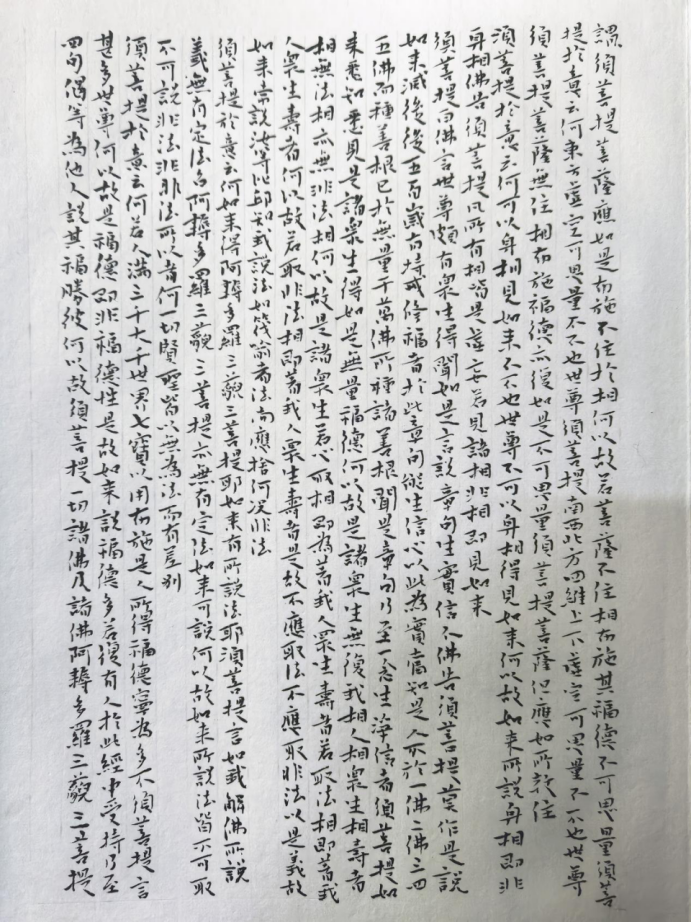 謂須菩提菩薩應如是布施不住於相何以故若菩薩不住相布施其福德不可思量須菩
提於意云何東方虛空可思量不不也世尊須菩提南西北方四維上下虛空可思量不不也世尊
須菩提菩薩無住相布施福德亦復如是不可思量須菩提菩薩但應如所教住
須菩提於意云何可以身相見如來不不也世尊不可以身相得見如來何以故如來所說身相即非
身相佛告須菩提凡所有相皆是虛妄若見諸相非相即見如來
須菩提白佛言世尊頗有衆生得聞如是言說章句生實信不佛告須菩提莫作是說
如來滅後後五百歲有持戒修福者於此章句能生信心以此為實當知是人不於一佛二佛三四
五佛而種善根已於無量千萬佛所種諸善根聞是章句乃至一念生淨信者須菩提如
來悉知悉見是諸衆生得如是無量福德何以故是諸衆生無復我相人相衆生相壽者
相無法相亦無非法相何以故是諸衆生若心取相即為著我人衆生壽者若取法相即著我
人衆生壽者何以故若取非法相即著我人衆生壽者是故不應取法不應取非法以是義故
如來常說汝等比邱知我說法如筏喻者法尚應捨何況非法
須菩提於意云何如來得阿耨多羅三藐三菩提耶如來有所說法耶須菩提言如我解佛所說
義無有定法名阿耨多羅三藐三菩提亦無有定法如來可說何以故如來所說法皆不可取
不可說非法非非法所以者何一切賢聖皆以無為法而有差別
須菩提於意云何若人滿三千大千世界七寶以用布施是人所得福德寧為多不須菩提言
甚多世尊何以故是福德即非福德性是故如來說福德多若復有人於此經中受持乃至
四句偈等為他人說其福勝彼何以故須菩提一切諸佛及諸佛阿耨多羅三藐三菩提